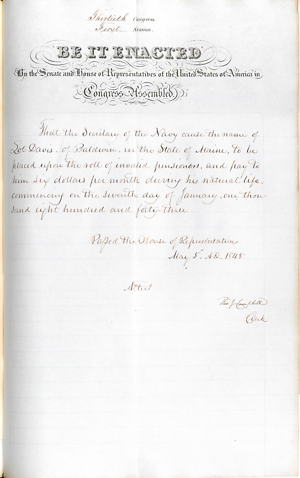 Thirtieth Congress.
First Session.
BE IT ENACTED
By the Senate and House of Representatives of the United States of America in
Congress Assembled,
That the Secretary of the Navy cause the name of
Davis, of Baldwin, in the State of Maine, to be
placed upon the roll of invalid pensioners, and pay to
him six dollars per month during his natural life,
commencing on the seventh day of January, one thou
sand eight hundred and forty three.
Passed the House of Representatives
May 5, A.D. 1848
Attest
Clerk